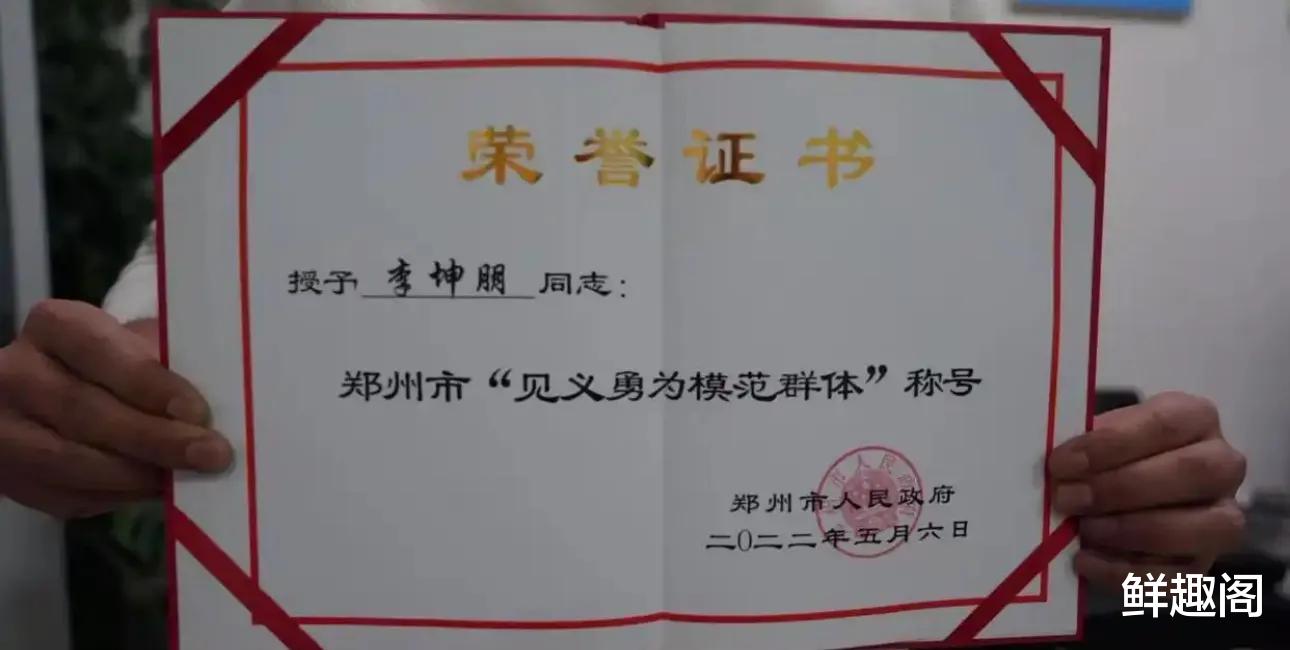 荣誉证书
授予 李坤朋 同志：
郑州市“见义勇为模范群体”称号
郑州市人民政府
二〇二二年五月六日
鲜趣阁